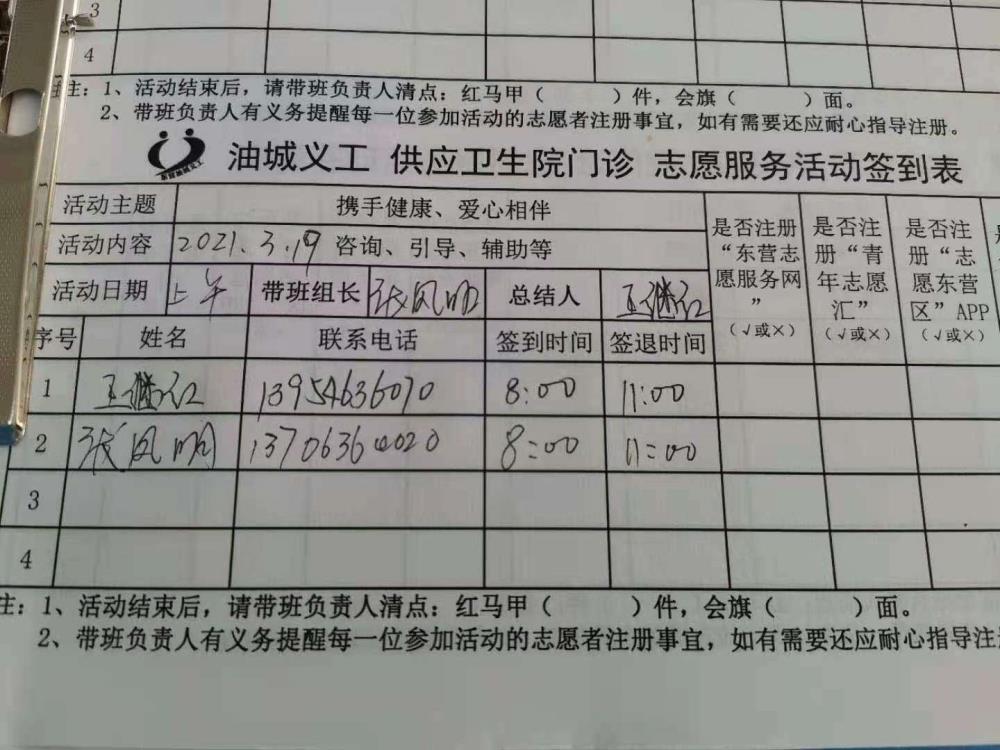 3
4
注：1、活动结束后，请带班负责人清点：红马甲（ ）件，会旗（ ）面。
2、带班负责人有义务提醒每一位参加活动的志愿者注册事宜，如有需要还应耐心指导注册。
油城义工 供应卫生院门诊 志愿服务活动签到表
活动主题 携手健康、爱心相伴 是否注册“东营志愿服务网”（√或×） 是否注册“青年志愿汇”（√或×） 是否注册“志愿东营区”APP（√或×）
活动内容 2021.3.19 咨询、引导、辅助等
活动日期 上午 带班组长 张凤明 总结人 王继红
序号 姓名 联系电话 签到时间 签退时间
1 王继红 13954636070 8:00 11:00
2 张凤明 13706364020 8:00 11:00
3
4
注：1、活动结束后，请带班负责人清点：红马甲（ ）件，会旗（ ）面。
2、带班负责人有义务提醒每一位参加活动的志愿者注册事宜，如有需要还应耐心指导注